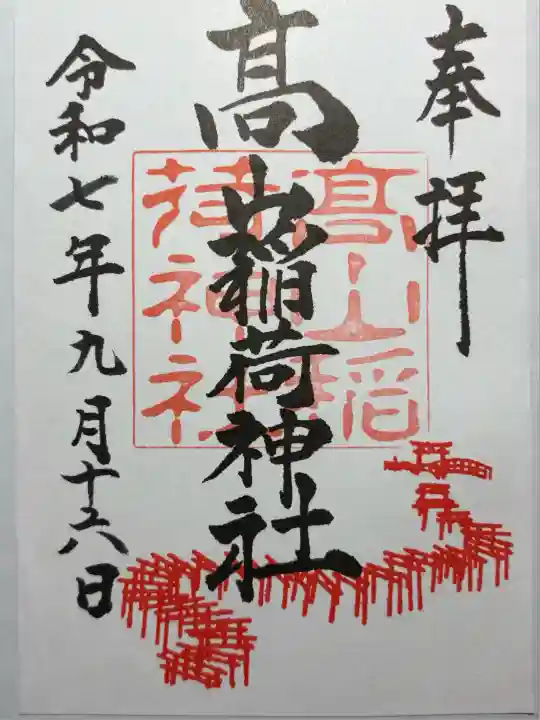 奉拝
髙山稲荷神社
髙山稲
荷神社
令和七年九月十六日